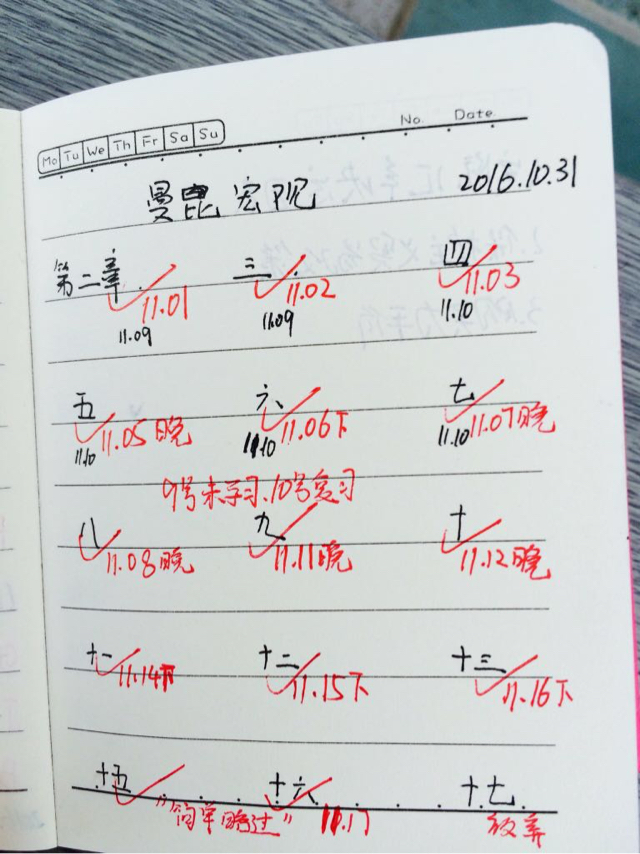 No. Date
Mo Tu We Th Fr Sa Su
曼昆宏观 2016.10.31
第二章 三 四
11.01 11.02 11.03
11.09 11.09 11.10
五 六 七
11.05晚 11.06下 11.07晚
11.10 11.10 11.10
9号未学习、10号复习
八 九 十
11.08晚 11.11晚 11.12晚
十一 十二 十三
11.14下 11.15下 11.16下
十五 十六 十七
"简单略过" 11.17 放弃